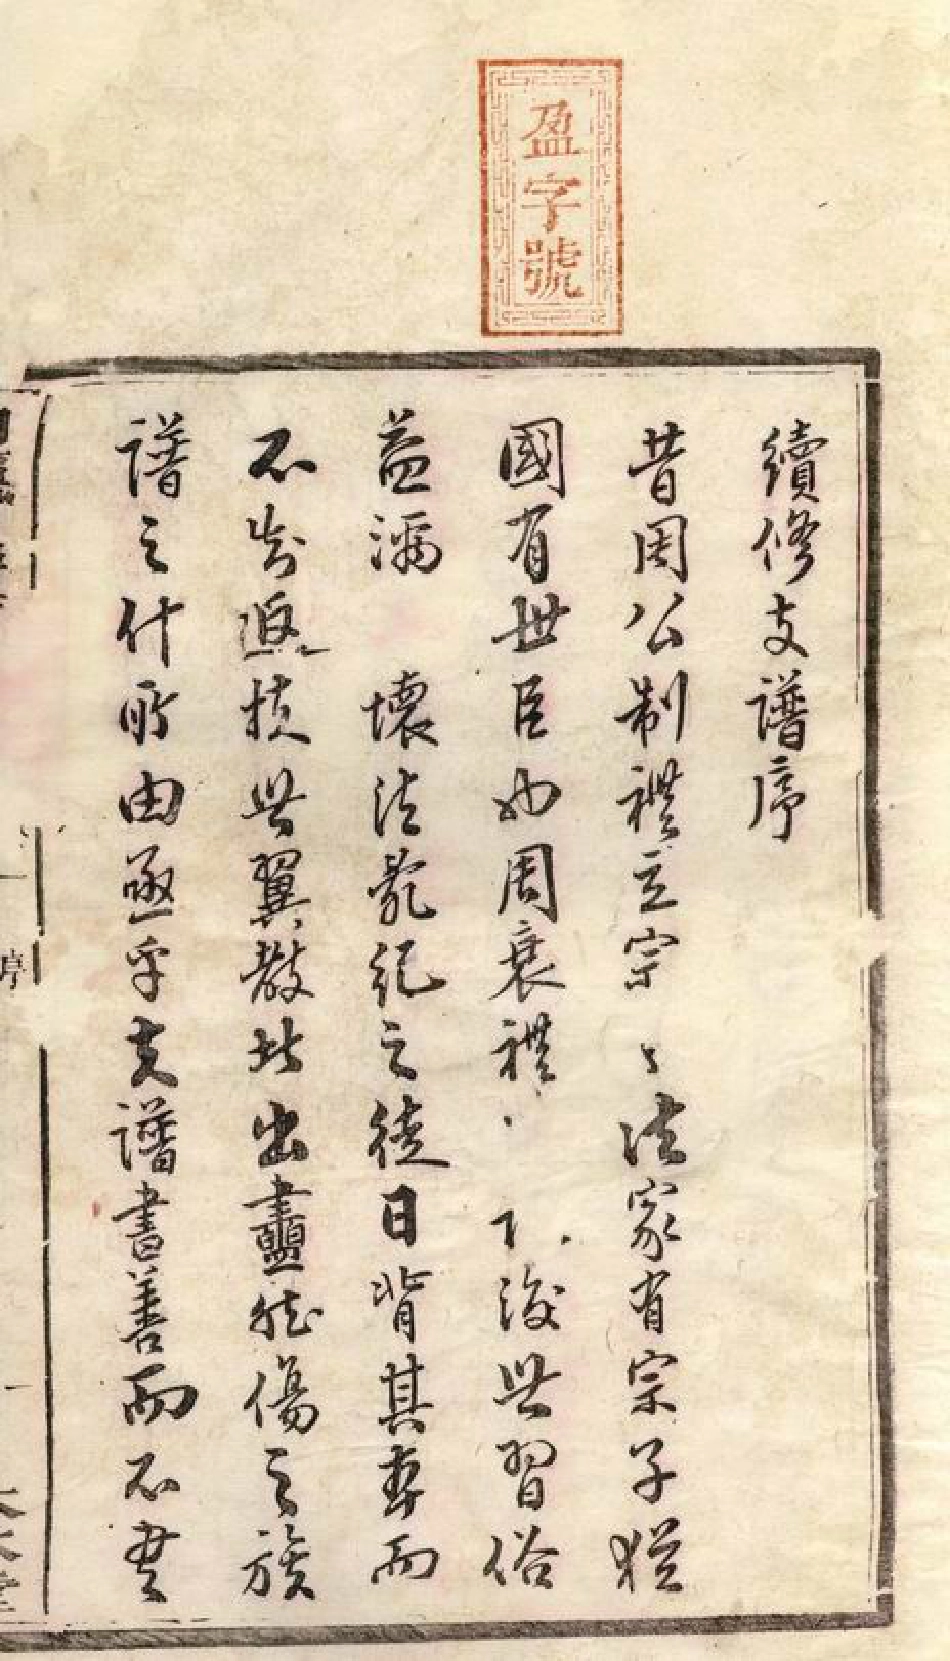 盈字號
續修支譜序
昔周公制禮立宗 法家有宗子猶
國有世臣也周衰禮 下後世習俗
益漓 壞法亂紀之徒日背其本而
不知返扶世翼教 出盡然傷之族
譜之什所由亟乎夫譜書善而不書
序